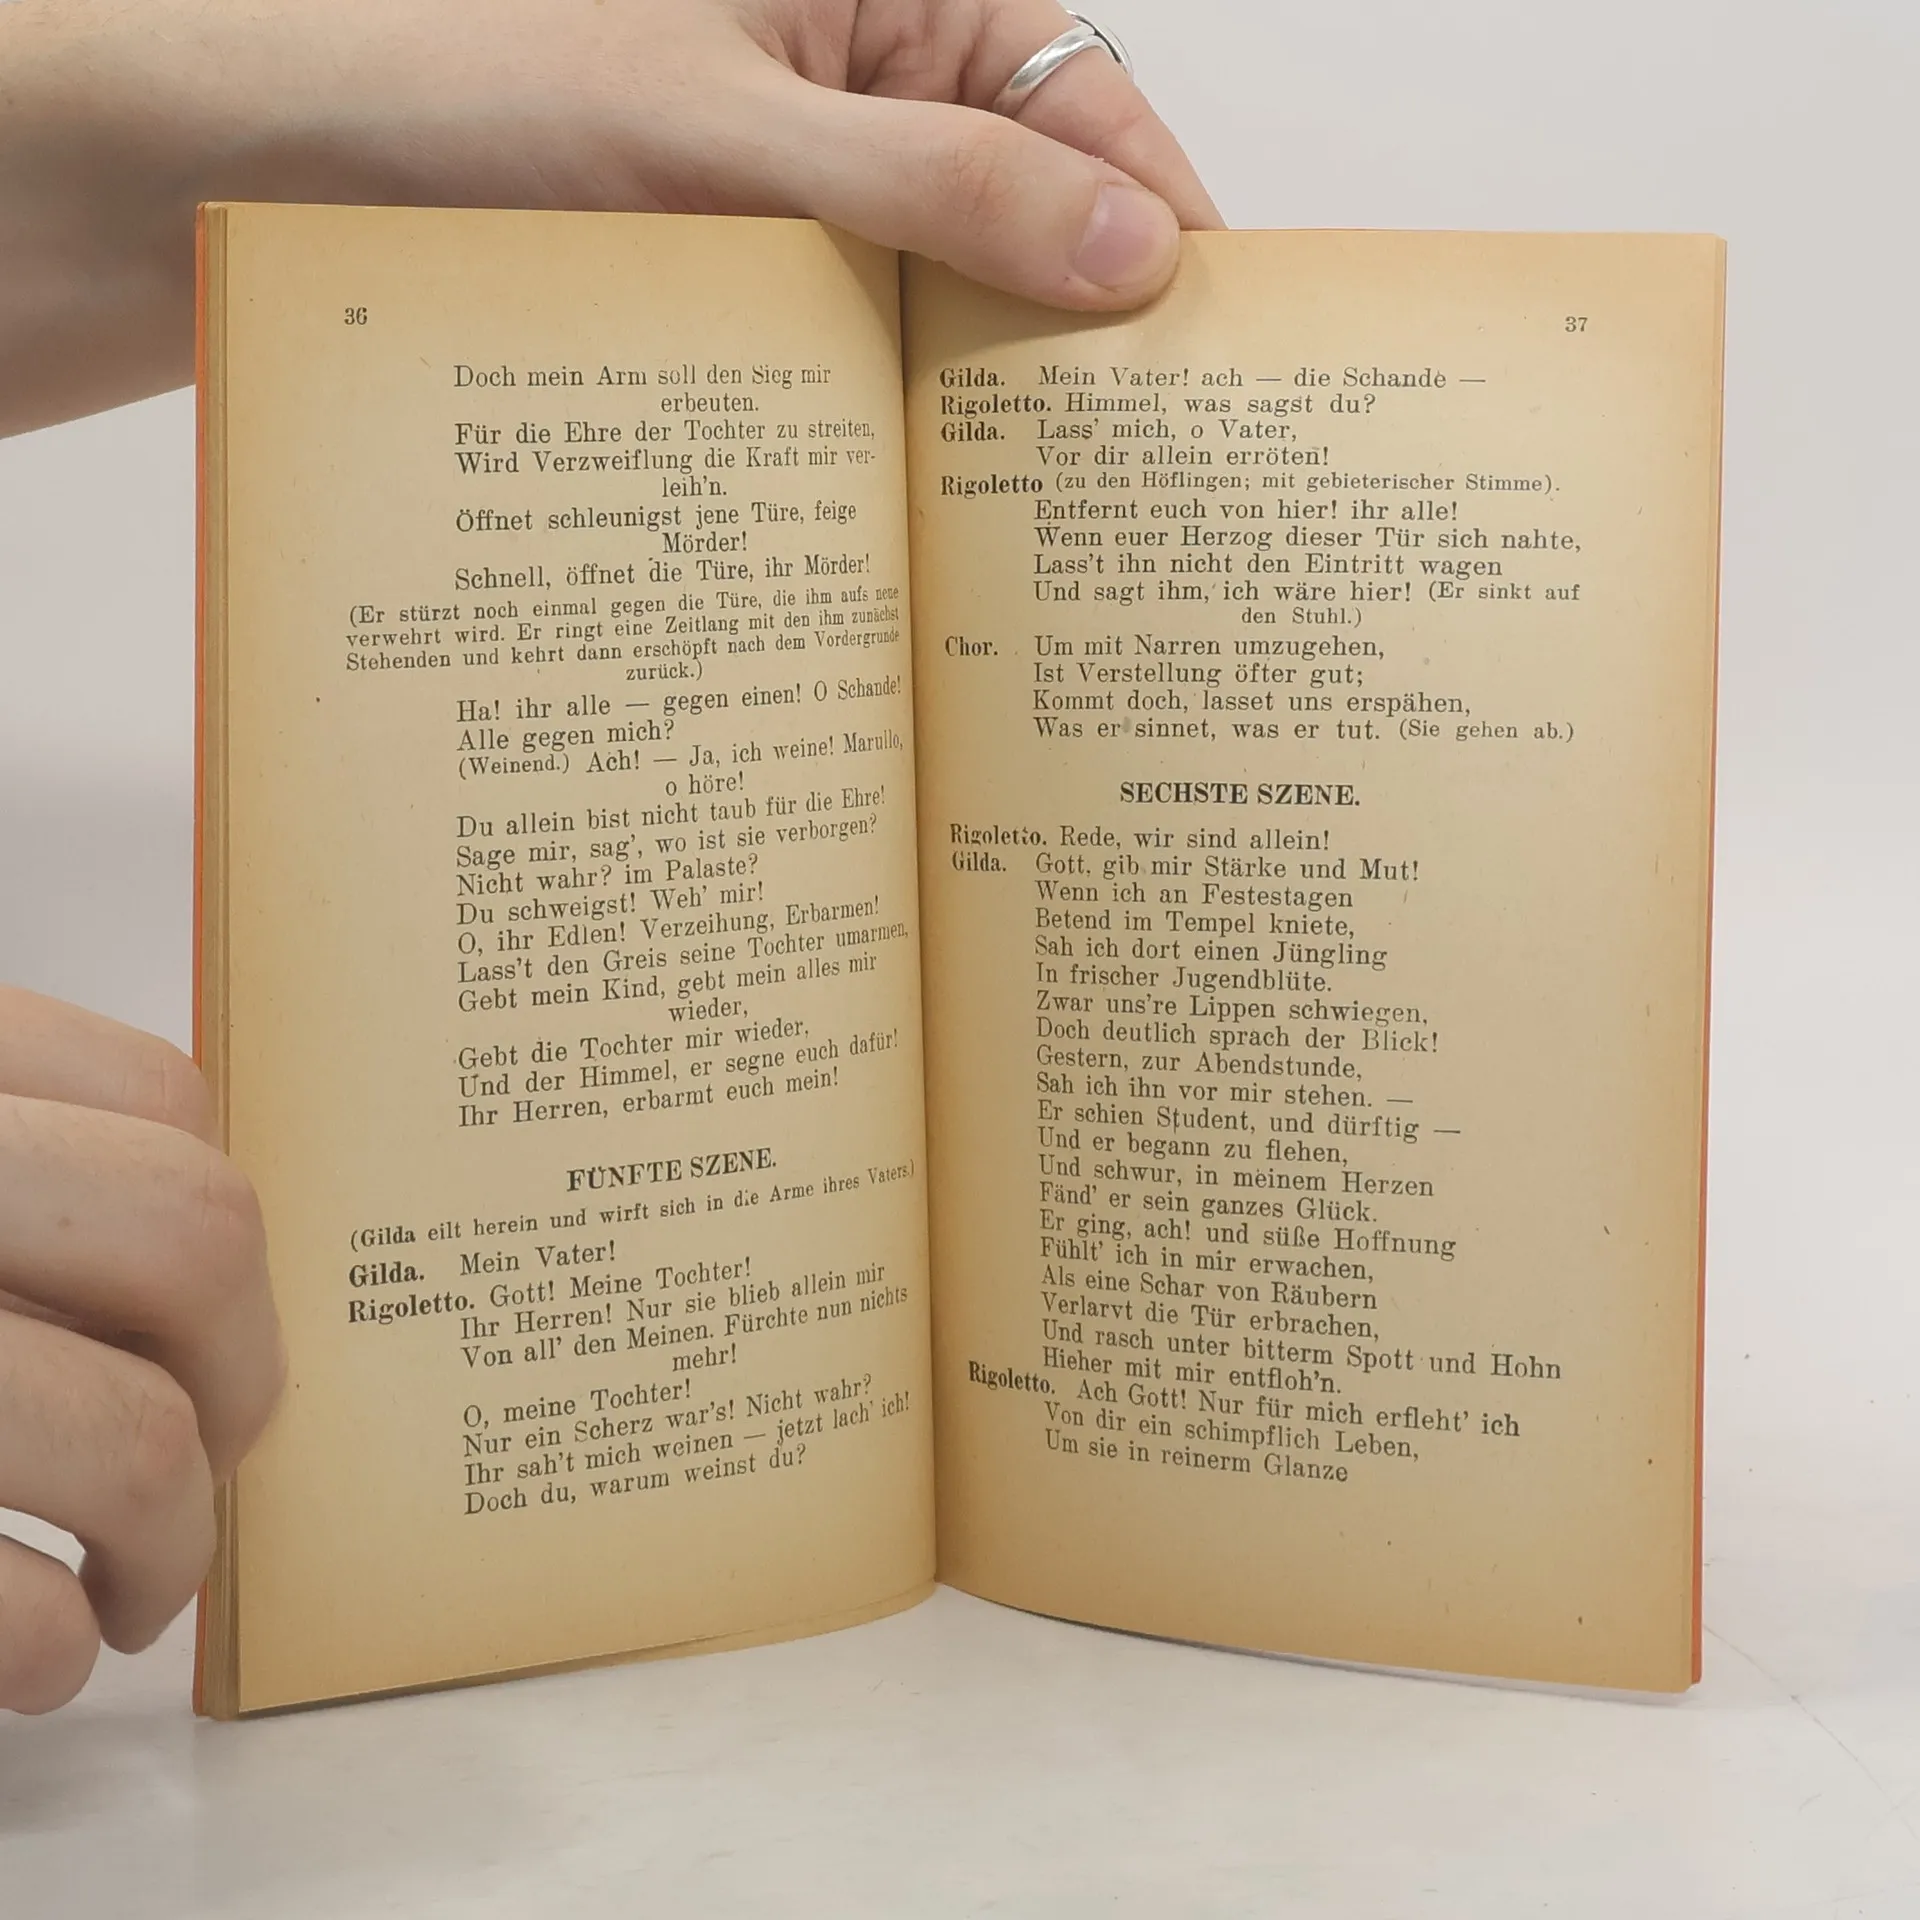 36
Doch mein Arm soll den Sieg mir
erbeuten.
Für die Ehre der Tochter zu streiten,
Wird Verzweiflung die Kraft mir ver-
leih'n.
Öffnet schleunigst jene Türe, feige
Mörder!
Schnell, öffnet die Türe, ihr Mörder!
(Er stürzt noch einmal gegen die Türe, die ihm aufs neue
verwehrt wird. Er ringt eine Zeitlang mit den ihm zunächst
Stehenden und kehrt dann erschöpft nach dem Vordergrunde
zurück.)
Ha! ihr alle — gegen einen! O Schande!
Alle gegen mich?
(Weinend.) Ach! — Ja, ich weine! Marullo,
o höre!
Du allein bist nicht taub für die Ehre!
Sage mir, sag', wo ist sie verborgen?
Nicht wahr? im Palaste?
Du schweigst! Weh' mir!
O, ihr Edlen! Verzeihung, Erbarmen!
Lass't den Greis seine Tochter umarmen,
Gebt mein Kind, gebt mein alles mir
wieder,
Gebt die Tochter mir wieder,
Und der Himmel, er segne euch dafür!
Ihr Herren, erbarmt euch mein!
FÜNFTE SZENE.
(Gilda eilt herein und wirft sich in die Arme ihres Vaters.)
Gilda. Mein Vater!
Rigoletto. Gott! Meine Tochter!
Ihr Herren! Nur sie blieb allein mir
Von all' den Meinen. Fürchte nun nichts
mehr!
O, meine Tochter!
Nur ein Scherz war's! Nicht wahr?
Ihr sah't mich weinen — jetzt lach' ich!
Doch du, warum weinst du?
37
Gilda. Mein Vater! ach — die Schande —
Rigoletto. Himmel, was sagst du?
Gilda. Lass' mich, o Vater,
Vor dir allein erröten!
Rigoletto (zu den Höflingen; mit gebieterischer Stimme).
Entfernt euch von hier! ihr alle!
Wenn euer Herzog dieser Tür sich nahte,
Lass't ihn nicht den Eintritt wagen
Und sagt ihm, ich wäre hier! (Er sinkt auf
den Stuhl.)
Chor. Um mit Narren umzugehen,
Ist Verstellung öfter gut;
Kommt doch, lasset uns erspähen,
Was er sinnet, was er tut. (Sie gehen ab.)
SECHSTE SZENE.
Rigoletto. Rede, wir sind allein!
Gilda. Gott, gib mir Stärke und Mut!
Wenn ich an Festestagen
Betend im Tempel kniete,
Sah ich dort einen Jüngling
In frischer Jugendblüte.
Zwar uns're Lippen schwiegen,
Doch deutlich sprach der Blick!
Gestern, zur Abendstunde,
Sah ich ihn vor mir stehen. —
Er schien Student, und dürftig —
Und er begann zu flehen,
Und schwur, in meinem Herzen
Fänd' er sein ganzes Glück.
Er ging, ach! und süße Hoffnung
Fühlt' ich in mir erwachen,
Als eine Schar von Räubern
Verlarvt die Tür erbrachen,
Und rasch unter bitterm Spott und Hohn
Hieher mit mir entfloh'n.
Rigoletto. Ach Gott! Nur für mich erfleht' ich
Von dir ein schimpflich Leben,
Um sie in reinerm Glanze